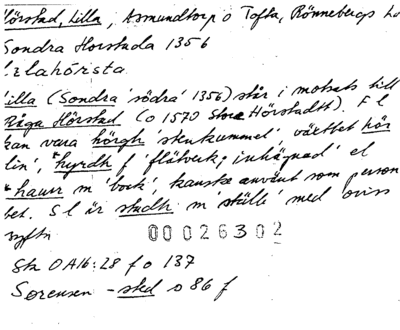 Hörstad, Lilla, Asmundtorp o Tofta, Rönnebergs h
Sondra Horstada 1356
Lilla (Sondra 'södra' 1356) står i motsats till
Råga Hörstad (o 1570 Store Hörstadtt). F l
kan vara hörgh 'stenkummel', växtbet hör
'lin', *hyrdh f 'flätverk; inhägnad' el
*haurr m 'bock', kanske använt som person
bet. S l är stadh m 'ställe' med oviss
syftn
00026302
Sk OA16:28 f o 137
Sorensen -sted s 86 f